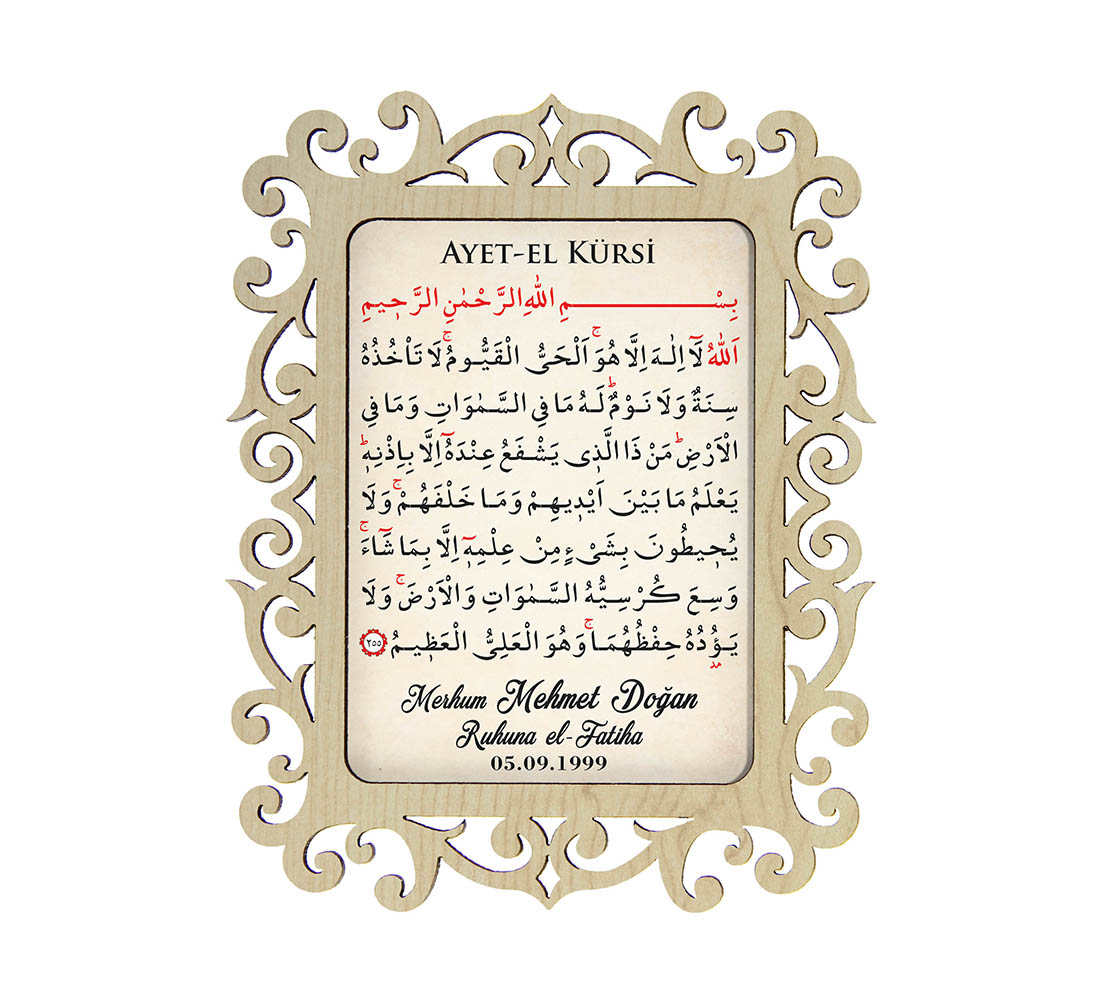 AYET-EL KÜRSİ
بِسْــــــــــــــــمِ اللّٰهِ الرَّحْمٰنِ الرَّح۪يمِ
اَللّٰهُ لَٓا اِلٰهَ اِلَّا هُوَۚ اَلْحَىُّ الْقَيُّومُۚ لَا تَأْخُذُهُ
سِنَةٌ وَلَا نَوْمٌۜ لَهُ مَا فِى السَّمٰوَاتِ وَمَا فِى
الْاَرْضِۜ مَنْ ذَا الَّذ۪ى يَشْفَعُ عِنْدَهُٓ اِلَّا بِاِذْنِه۪ۜ
يَعْلَمُ مَا بَيْنَ اَيْد۪يهِمْ وَمَا خَلْفَهُمْۚ وَلَا
يُح۪يطُونَ بِشَىْءٍ مِنْ عِلْمِه۪ٓ اِلَّا بِمَا شَٓاءَۚ
وَسِعَ كُرْسِيُّهُ السَّمٰوَاتِ وَالْاَرْضَۚ وَلَا
يَؤُ۫دُهُ حِفْظُهُمَاۚ وَهُوَ الْعَلِىُّ الْعَظ۪يمُ ٢٥٥
Merhum Mehmet Doğan
Ruhuna el-Fatiha
05.09.1999